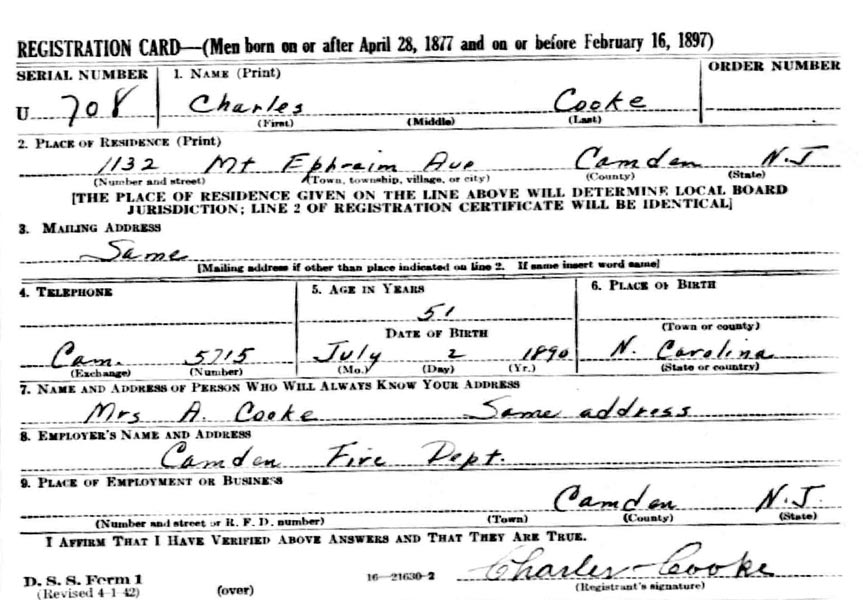 REGISTRATION CARD—(Men born on or after April 28, 1877 and on or before February 16, 1897)
SERIAL NUMBER 1. NAME (Print) ORDER NUMBER
U 708 Charles Cooke
(First) (Middle) (Last)
2. PLACE OF RESIDENCE (Print)
1132 Mt Ephraim Ave Camden N.J
(Number and street) (Town, township, village, or city) (County) (State)
[THE PLACE OF RESIDENCE GIVEN ON THE LINE ABOVE WILL DETERMINE LOCAL BOARD
JURISDICTION; LINE 2 OF REGISTRATION CERTIFICATE WILL BE IDENTICAL]
3. MAILING ADDRESS
Same
[Mailing address if other than place indicated on line 2. If same insert word same]
4. TELEPHONE 5. AGE IN YEARS 6. PLACE OF BIRTH
51
(Town or county)
DATE OF BIRTH
Cam. 5715 July 2 1890 N. Carolina
(Exchange) (Number) (Mo.) (Day) (Yr.) (State or country)
7. NAME AND ADDRESS OF PERSON WHO WILL ALWAYS KNOW YOUR ADDRESS
Mrs A. Cooke Same address
8. EMPLOYER'S NAME AND ADDRESS
Camden Fire Dept.
9. PLACE OF EMPLOYMENT OR BUSINESS
Camden N.J.
(Number and street or R. F. D. number) (Town) (County) (State)
I AFFIRM THAT I HAVE VERIFIED ABOVE ANSWERS AND THAT THEY ARE TRUE.
Charles Cooke
D. S. S. Form 1 16—21630-2 (Registrant's signature)
(Revised 4-1-42) (over)